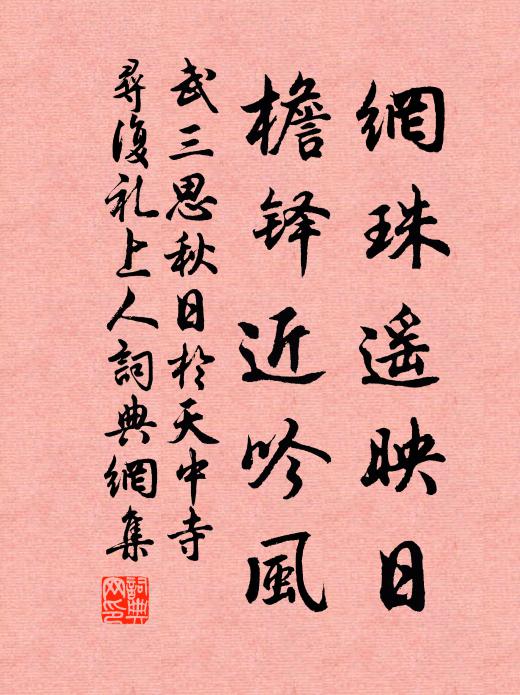 網珠遥映日
檐铎近吟風
武三思秋日於天中寺
尋復礼上人詞典網集
詞典網印